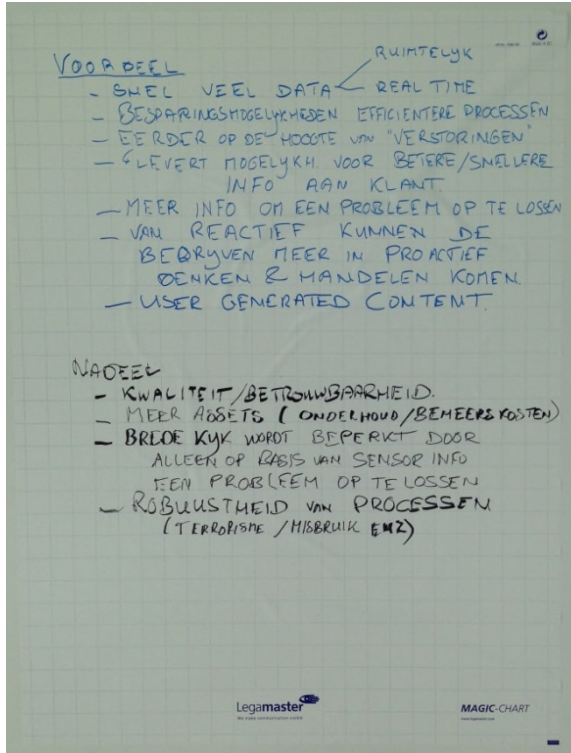 VOORDEEL
RUIMTELYK
- SNEL VEEL DATA < REAL TIME
- BESPARINGSMOGELYKHEDEN EFFICIENTERE PROCESSEN
- EERDER OP DE HOOGTE VAN "VERSTORINGEN"
- LEVERT MOGELYKH. VOOR BETERE/SNELLERE
INFO AAN KLANT.
- MEER INFO OM EEN PROBLEEM OP TE LOSSEN
- VAN REACTIEF KUNNEN DE
BEDRYVEN MEER IN PROACTIEF
DENKEN & HANDELEN KOMEN.
- USER GENERATED CONTENT.
NADEEL
- KWALITEIT/BETROUWBAARHEID.
- MEER ASSETS (ONDERHOUD/BEHEERSKOSTEN)
- BREDE KYK WORDT BEPERKT DOOR
ALLEEN OP BASIS VAN SENSOR INFO
EEN PROBLEEM OP TE LOSSEN
- ROBUUSTHEID VAN PROCESSEN
(TERRORISME/MISBRUIK ENZ)
Legamaster
We make communication visible
MAGIC-CHART
www.legamaster.com